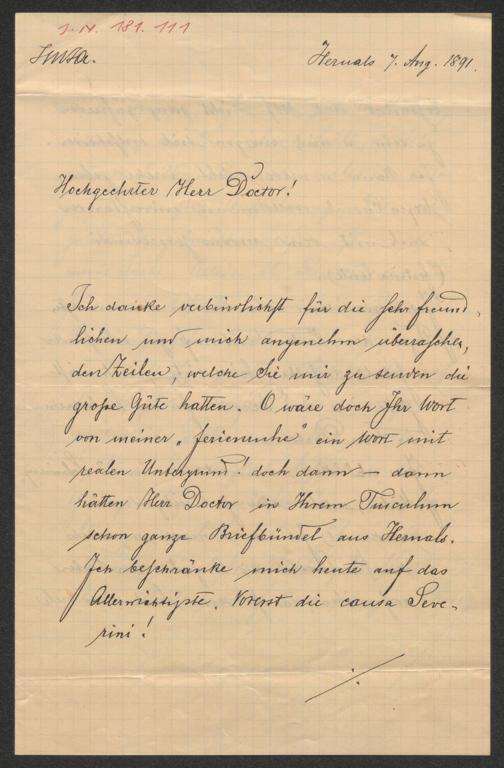 J. N. 181.111
Hernals 7. Aug. 1891.
Hochgeehrter Herr Doctor!
Ich danke verbindlichst für die sehr freund-
lichen und mich angenehm überraschen-
den Zeilen, welche Sie mir zu senden die
große Güte hatten. O wäre doch Ihr Wort
von meiner „Ferienruhe" ein Wort mit
realen Untergrund! doch dann – dann
hätten Herr Doctor in Ihrem Tusculum
schon ganze Briefbündel aus Hernals.
Ich beschränke mich heute auf das
Allerwichtigste. Vorerst die causa Seve-
rini!
./.